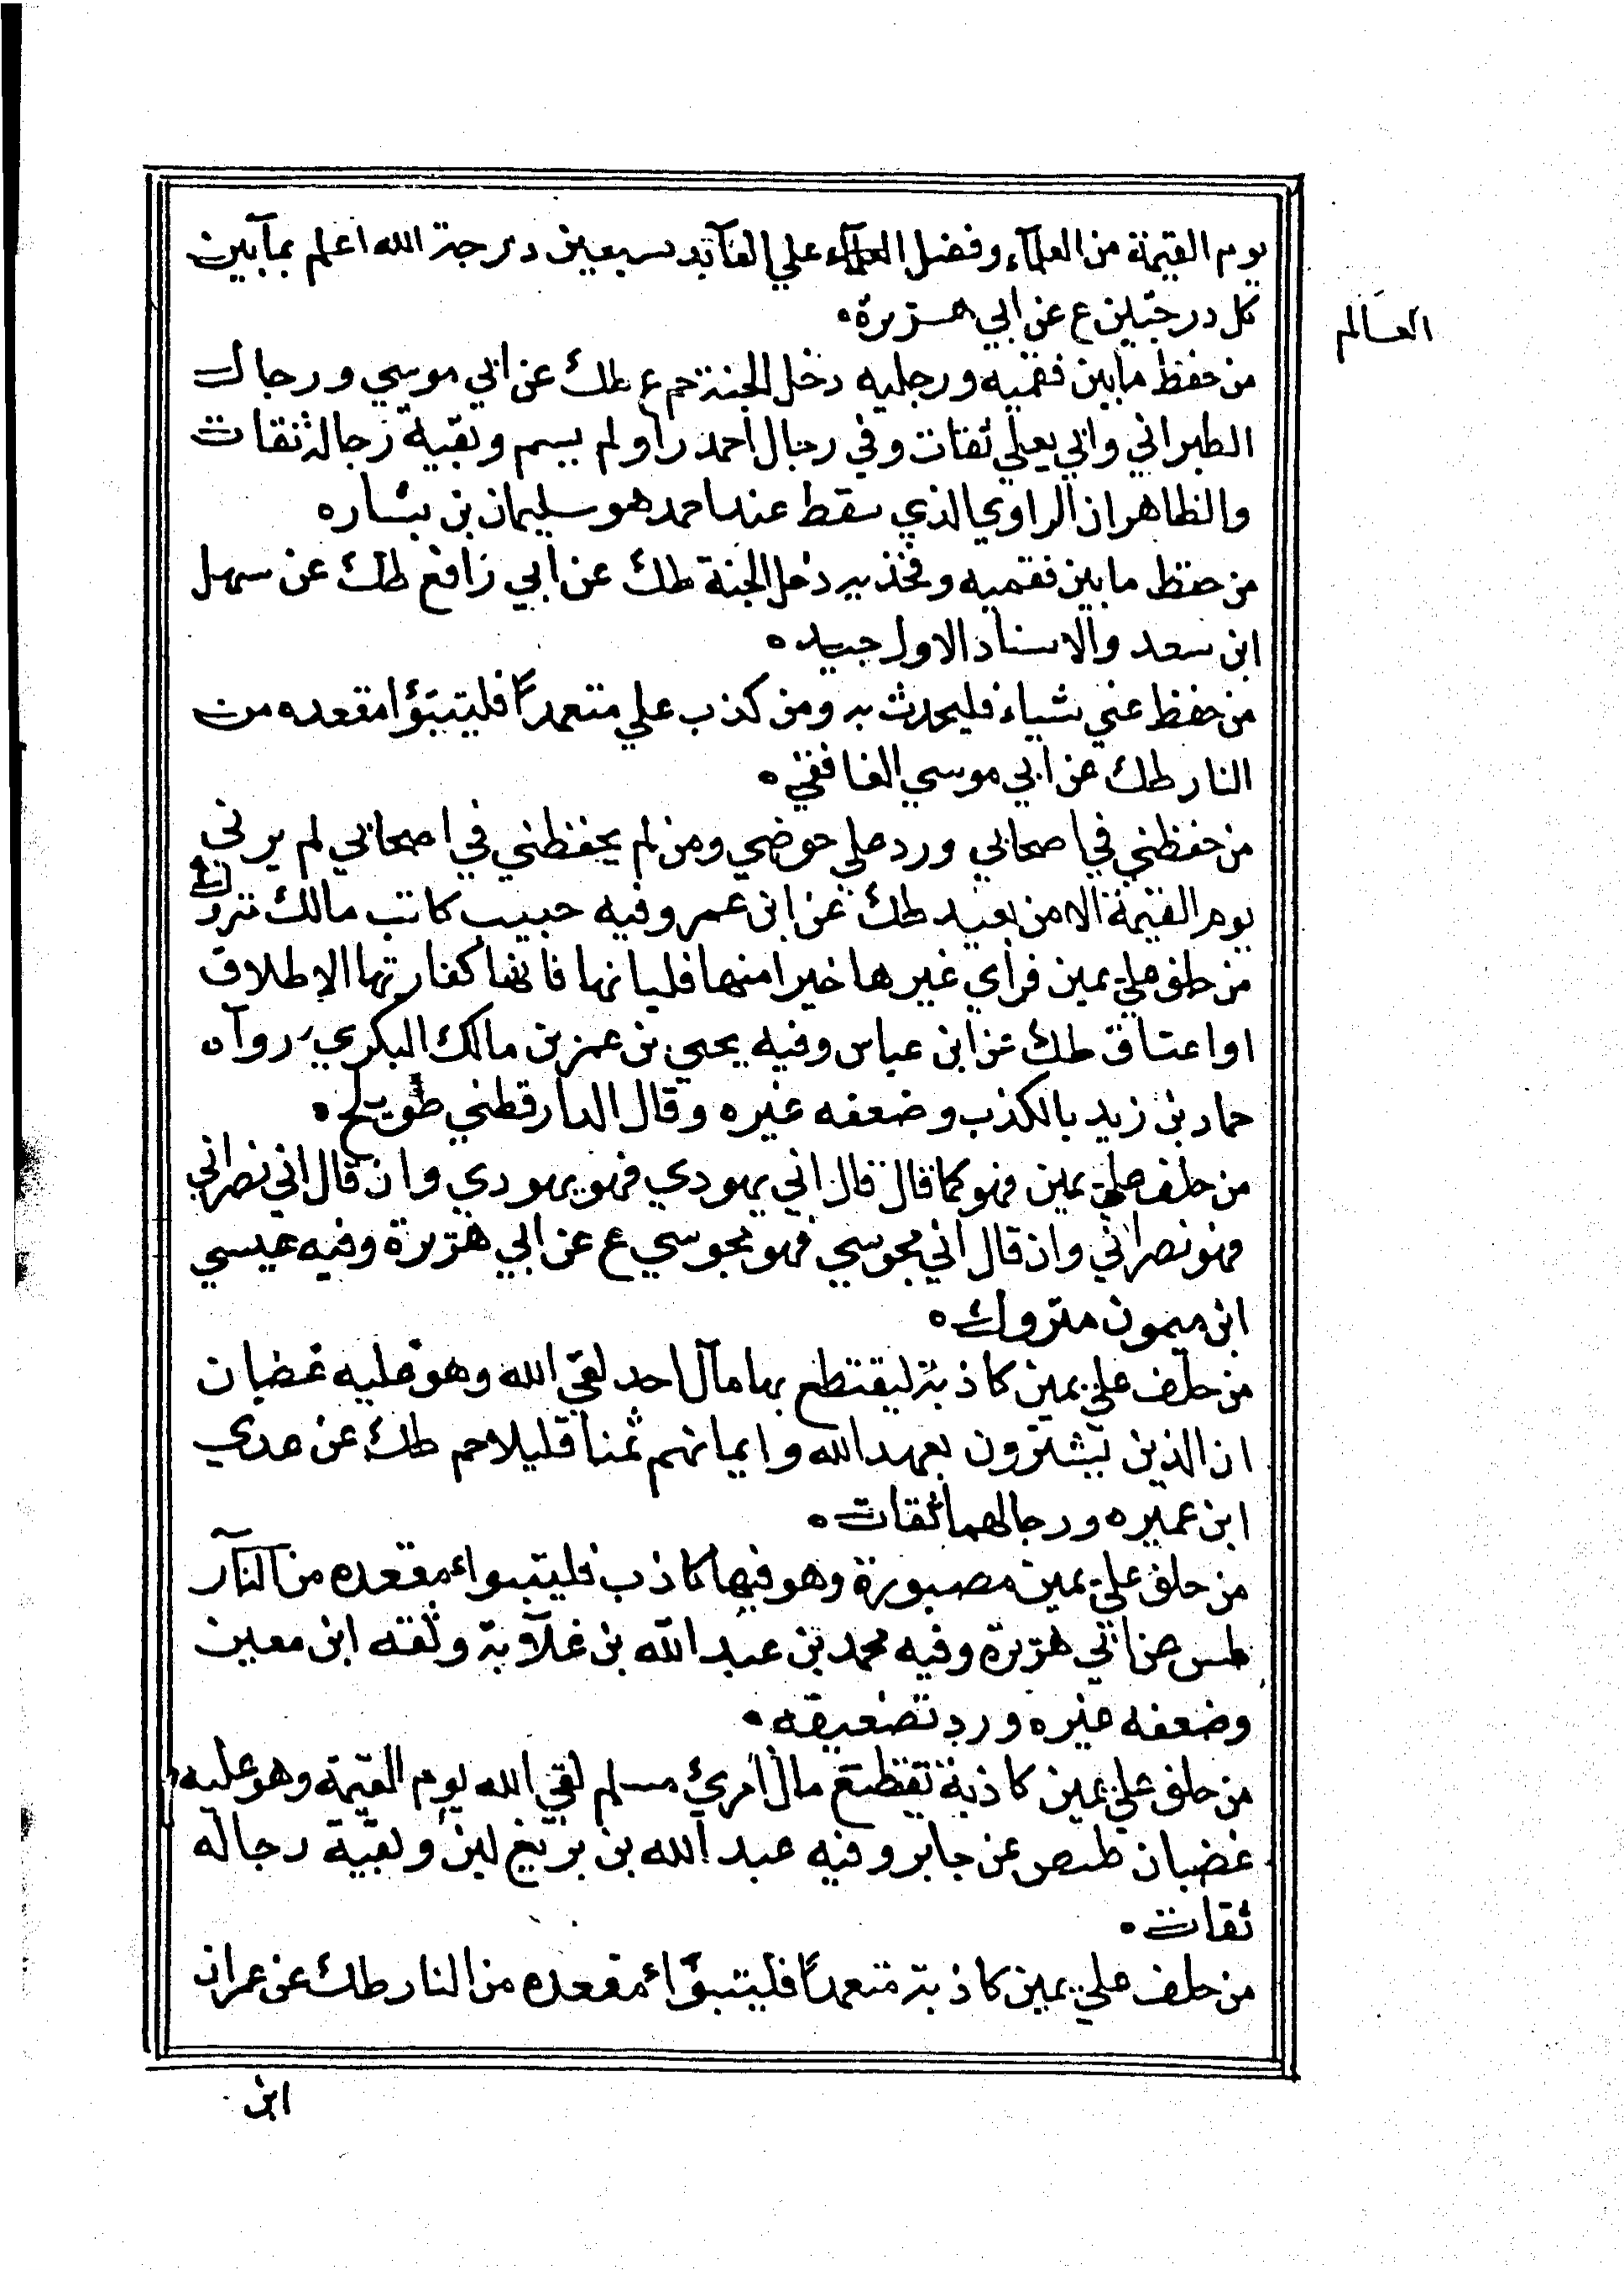 يوم القيمة من العلمآء وفضل العلمآء علي العآبد سبعين درجة الله اعلم بمآبين
العَالم
كل درجتين ع عن ابي هريرة
من حفظ مابين فقميه ورجليه دخل الجنة حم ع طك عن ابي موسي ورجال
الطبراني وابي يعلي ثقات وفي رجال احمد راو لم يسم وبقية رجاله ثقات
والظاهر ان الراوي الذي سقط عند احمد هو سليمان بن يسار
من حفظ مابين فقميه وفخذيه دخل الجنة طك عن ابي رافع طك عن سهل
ابن سعد والاسناد الاول جيد
من حفظ عني شياء فليحدث به ومن كذب علي متعمدًا فليتبوٌا مقعده من
النار طك عن ابي موسي الغافقي
من حفظني في اصحابي ورد علي حوضي ومن لم يحفظني في اصحابي لم يرني
يوم القيمة الا من بعيد طك عن ابن عمر وفيه حبيب كاتب مالك متروك
من حلف علي يمين فراي غيرها خيرا منها فلياتها فانها كفارتها الا طلاق
او اعتاق طك عن ابن عباس وفيه يحيي بن عمر بن مالك البكري رواه
حماد بن زيد بالكذب وضعفه غيره وقال الدارقطني صويلح
من حلف علي يمين فهو كما قال قال اني يهودي فهو يهودي وان قال اني نصراني
فهو نصراني وان قال اني مجوسي فهو مجوسي ع عن ابي هريرة وفيه عيسي
ابن ميمون متروك
من حلف علي يمين كاذبة ليقتطع بها مآل احد لقي الله وهو عليه غضبان
ان الذين يشترون بعهد الله وايمانهم ثمنا قليلا حم طك عن عدي
ابن عميره ورجالهما ثقات
من حلف علي يمين مصبورة وهو فيها كاذب فليتبواء مقعده من النآر
طس عن ابي هريرة وفيه محمد بن عبد الله بن علآبة وثقه ابن معين
وضعفه غيره ورد تضعيفه
من حلف علي يمين كاذبة تقتطع مال امرئ مسلم لقي الله يوم القيمة وهو عليه
غضبان طص عن جابر وفيه عبد الله بن بريغ لين وبقية رجاله
ثقات
من حلف علي يمين كاذبة متعمدًا فليتبوَّاء مقعده من النار طك عن عمران
ابن